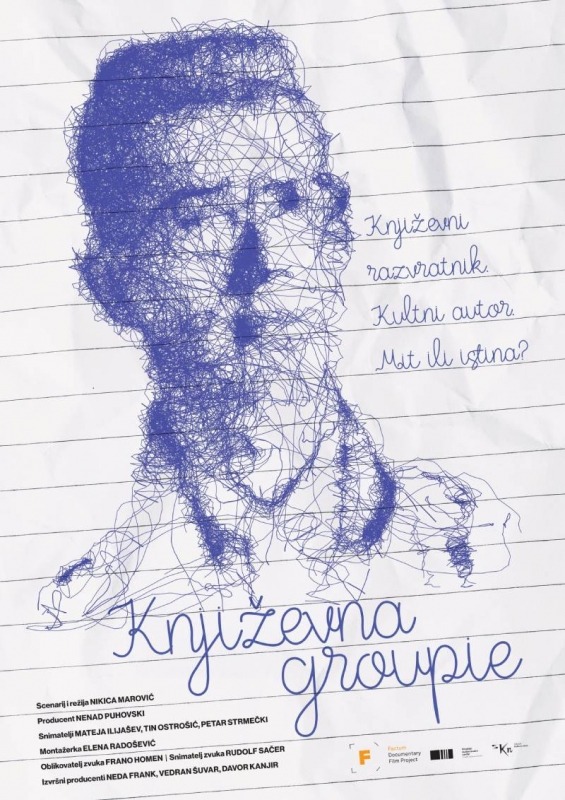 Književni
razvratnik.
Kultni autor.
Mit ili istina?
Književna
groupie
Scenarij i režija NIKICA MAROVIĆ
Producent NENAD PUHOVSKI
Snimatelji MATEJA ILIJAŠEV, TIN OSTROŠIĆ, PETAR STRMEČKI
Montažerka ELENA RADOŠEVIĆ
Oblikovatelj zvuka FRANO HOMEN | Snimatelj zvuka RUDOLF SAČER
Izvršni producenti NEDA FRANK, VEDRAN ŠUVAR, DAVOR KANJIR
F
Factum
Documentary
Film Project
Kn